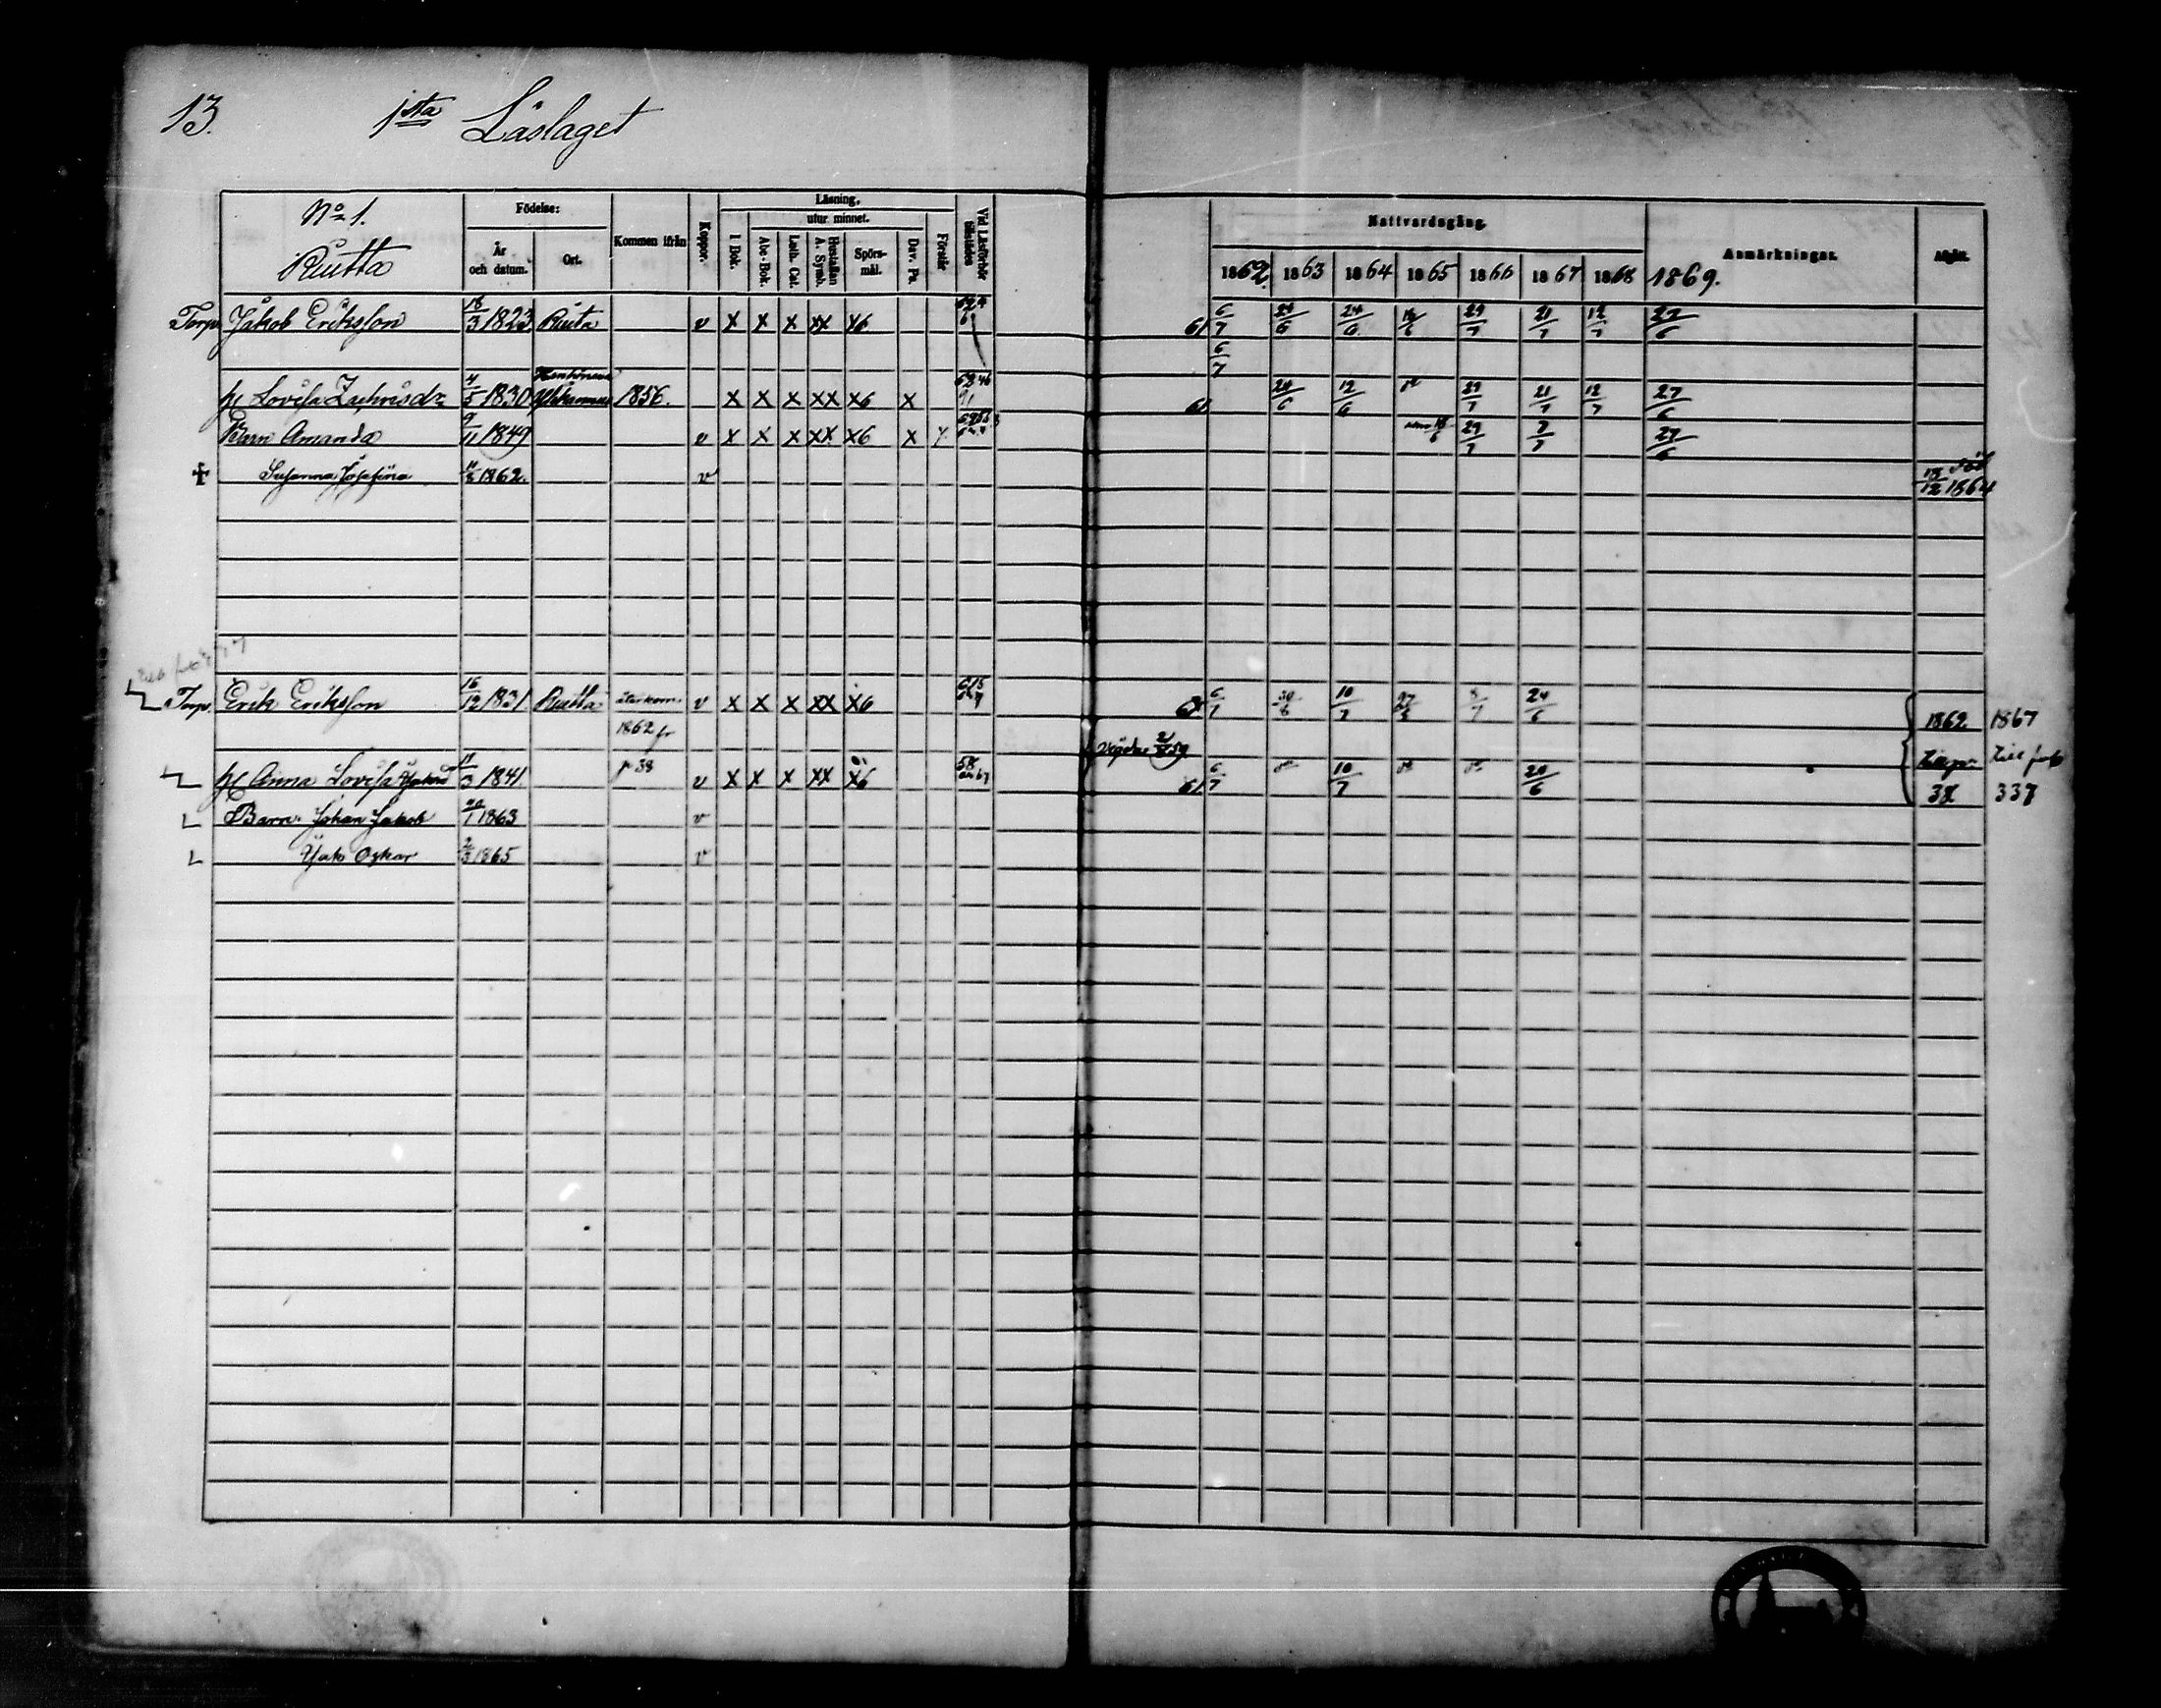 13.
1sta Läslaget
No 1.
Ruutta
Födelse:
År och datum.
Ort.
Kommen ifrån
Koppor.
Läsning,
utur minnet.
I Bok.
Abc-Bok.
Luth. Cat.
Hustaflan A. Symb.
Spörsmål.
Dav. Ps.
Förstår
Vid Läsförhör tillstädes
Nattvardsgång.
1862. 1863 1864 1865 1866 1867 1868 1869.
Anmärkningar.
Afgått.
Torp. Jakob Eriksson 18/3 1823 Ruuta v x x x xx x6 61 6/7 24/6 24/6 18/6 29/7 21/7 12/7 27/6
6/7
H Lovisa Zachrisdr 4/5 1830 1856. x x x xx x6 x 61 24/6 12/6 29/7 21/7 12/7 27/6
Barn Amanda 9/11 1849 v x x x xx x6 x 29/7 7/7 27/6
+ Susanna Josefina 1862. v död 18/12 1864
Torp. Erik Eriksson 16/12 1831 Ruutta återkom v x x x xx x6 6/7 30/8 10/7 27/8 8/7 24/6
1862 fr 1862 1867
p 38
H Anna Lovisa 17/3 1841. v x x x xx x6 61 6/7 10/7 24/6 38 337
Barn. Johan Jakob 1863 v
Oskar 2/3 1865 v